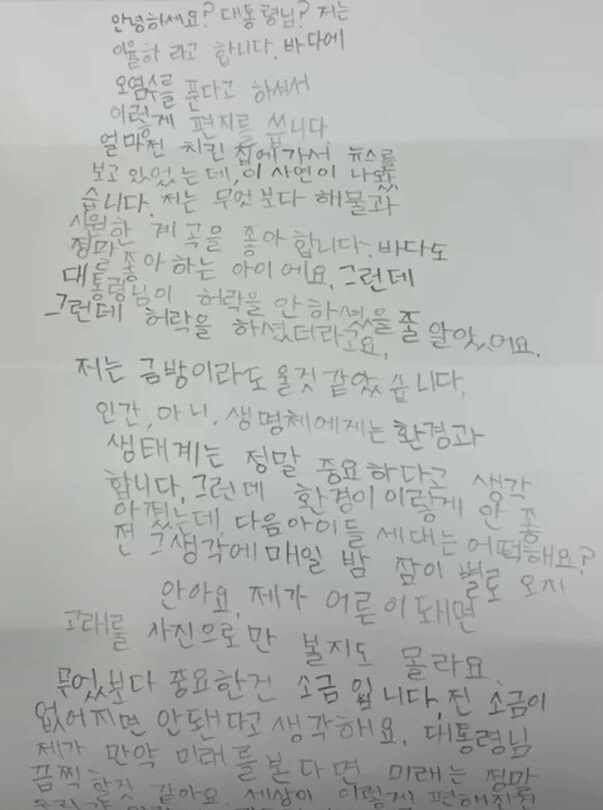 안녕하세요? 대통령님? 저는
이율하 라고 합니다. 바다에
오염수를 푼다고 하셔서
이렇게 편지를 씁니다
얼마전 치킨 집에가서 뉴스를
보고 있었는데, 이 사연이 나왔
습니다. 저는 무엇 보다 해물과
시원한 계곡을 좋아 합니다. 바다도
정마 좋아 하는 아이 에요. 그런데
대통령님이 허락을 안 하셨을 줄 알았어요.
그런데 허락을 하셨더라고요,
저는 금방이라도 울것 같았 습니다.
인간, 아니, 생명체에게는 환경과
생태계는 정말 중요 하다고 생각
합니다. 그런데 환경이 이렇게 안 좋
아 졌는데, 다음아이들 세대는 어떡해요?
전 그생각에 매일 밤 잠이 별로 오지
안아요. 제가 어른 이 돼면
고래를 사진으로 만 볼지도 몰라요.
무엇보다 중요한건 소금 입니다. 전 소금이
없어지면 안됀다고 생각해요. 대통령님
제가 만약 미래를본 다면 미래는 정마
끔찍 할것 같아요. 세상이 이렇게 편해진